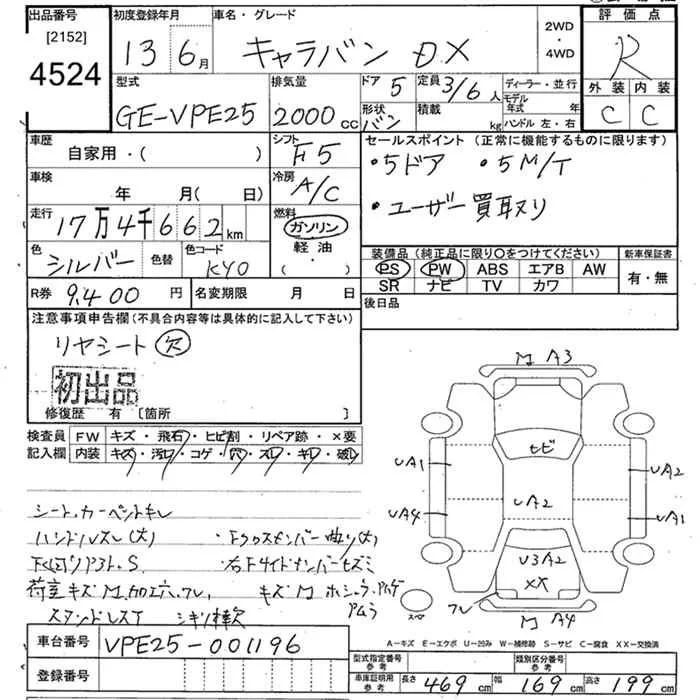 出品番号
[2152]
4524
初度登録年月
13 6月
車名・グレード
キャラバン DX
2WD
・
4WD
評価点
R
外装 内装
C C
型式
GE-VPE25
排気量
2000cc
ドア 5
形状 バン
定員 3/6人
積載 kg
ディーラー・並行
モデル年式 年
ハンドル 左・右
車歴
自家用・( )
シフト
F5
車検
年 月( 日)
冷房
A/C
走行
17万4千662km
燃料
ガソリン
軽油
( ・ )
色
シルバー
色替
色コード
KY0
セールスポイント (正常に機能するものに限ります)
・5ドア ・5M/T
・ユーザー買取り
装備品 (純正品に限り○をつけてください)
PS PW ABS エアB AW
SR ナビ TV カワ
新車保証書
有・無
R券 9,400円
名変期限 月 日
後日品
注意事項申告欄 (不具合内容等は具体的に記入して下さい)
リヤシート 欠
初出品
修復歴 有 [箇所 ]
検査員記入欄
FW キズ・飛石・ヒビ割・リペア跡・×要
内装 キズ・汚れ・コゲ・穴・スレ・キレ・破れ
シート、カーペットキレ
ハンドルスレ(大)
M A3
UA1
UA4
ヒビ
UA2
UA2
UA1
U3A2
XX
M A4
フレ
スペア
A－キズ E－エクボ U－凹み W－補修跡 S－サビ C－腐食 XX－交換済
車台番号 VPE25-001196
登録番号
型式指定番号 参考
類別区分番号 参考
車庫証明用 参考
長さ 469cm 幅 169cm 高さ 199cm